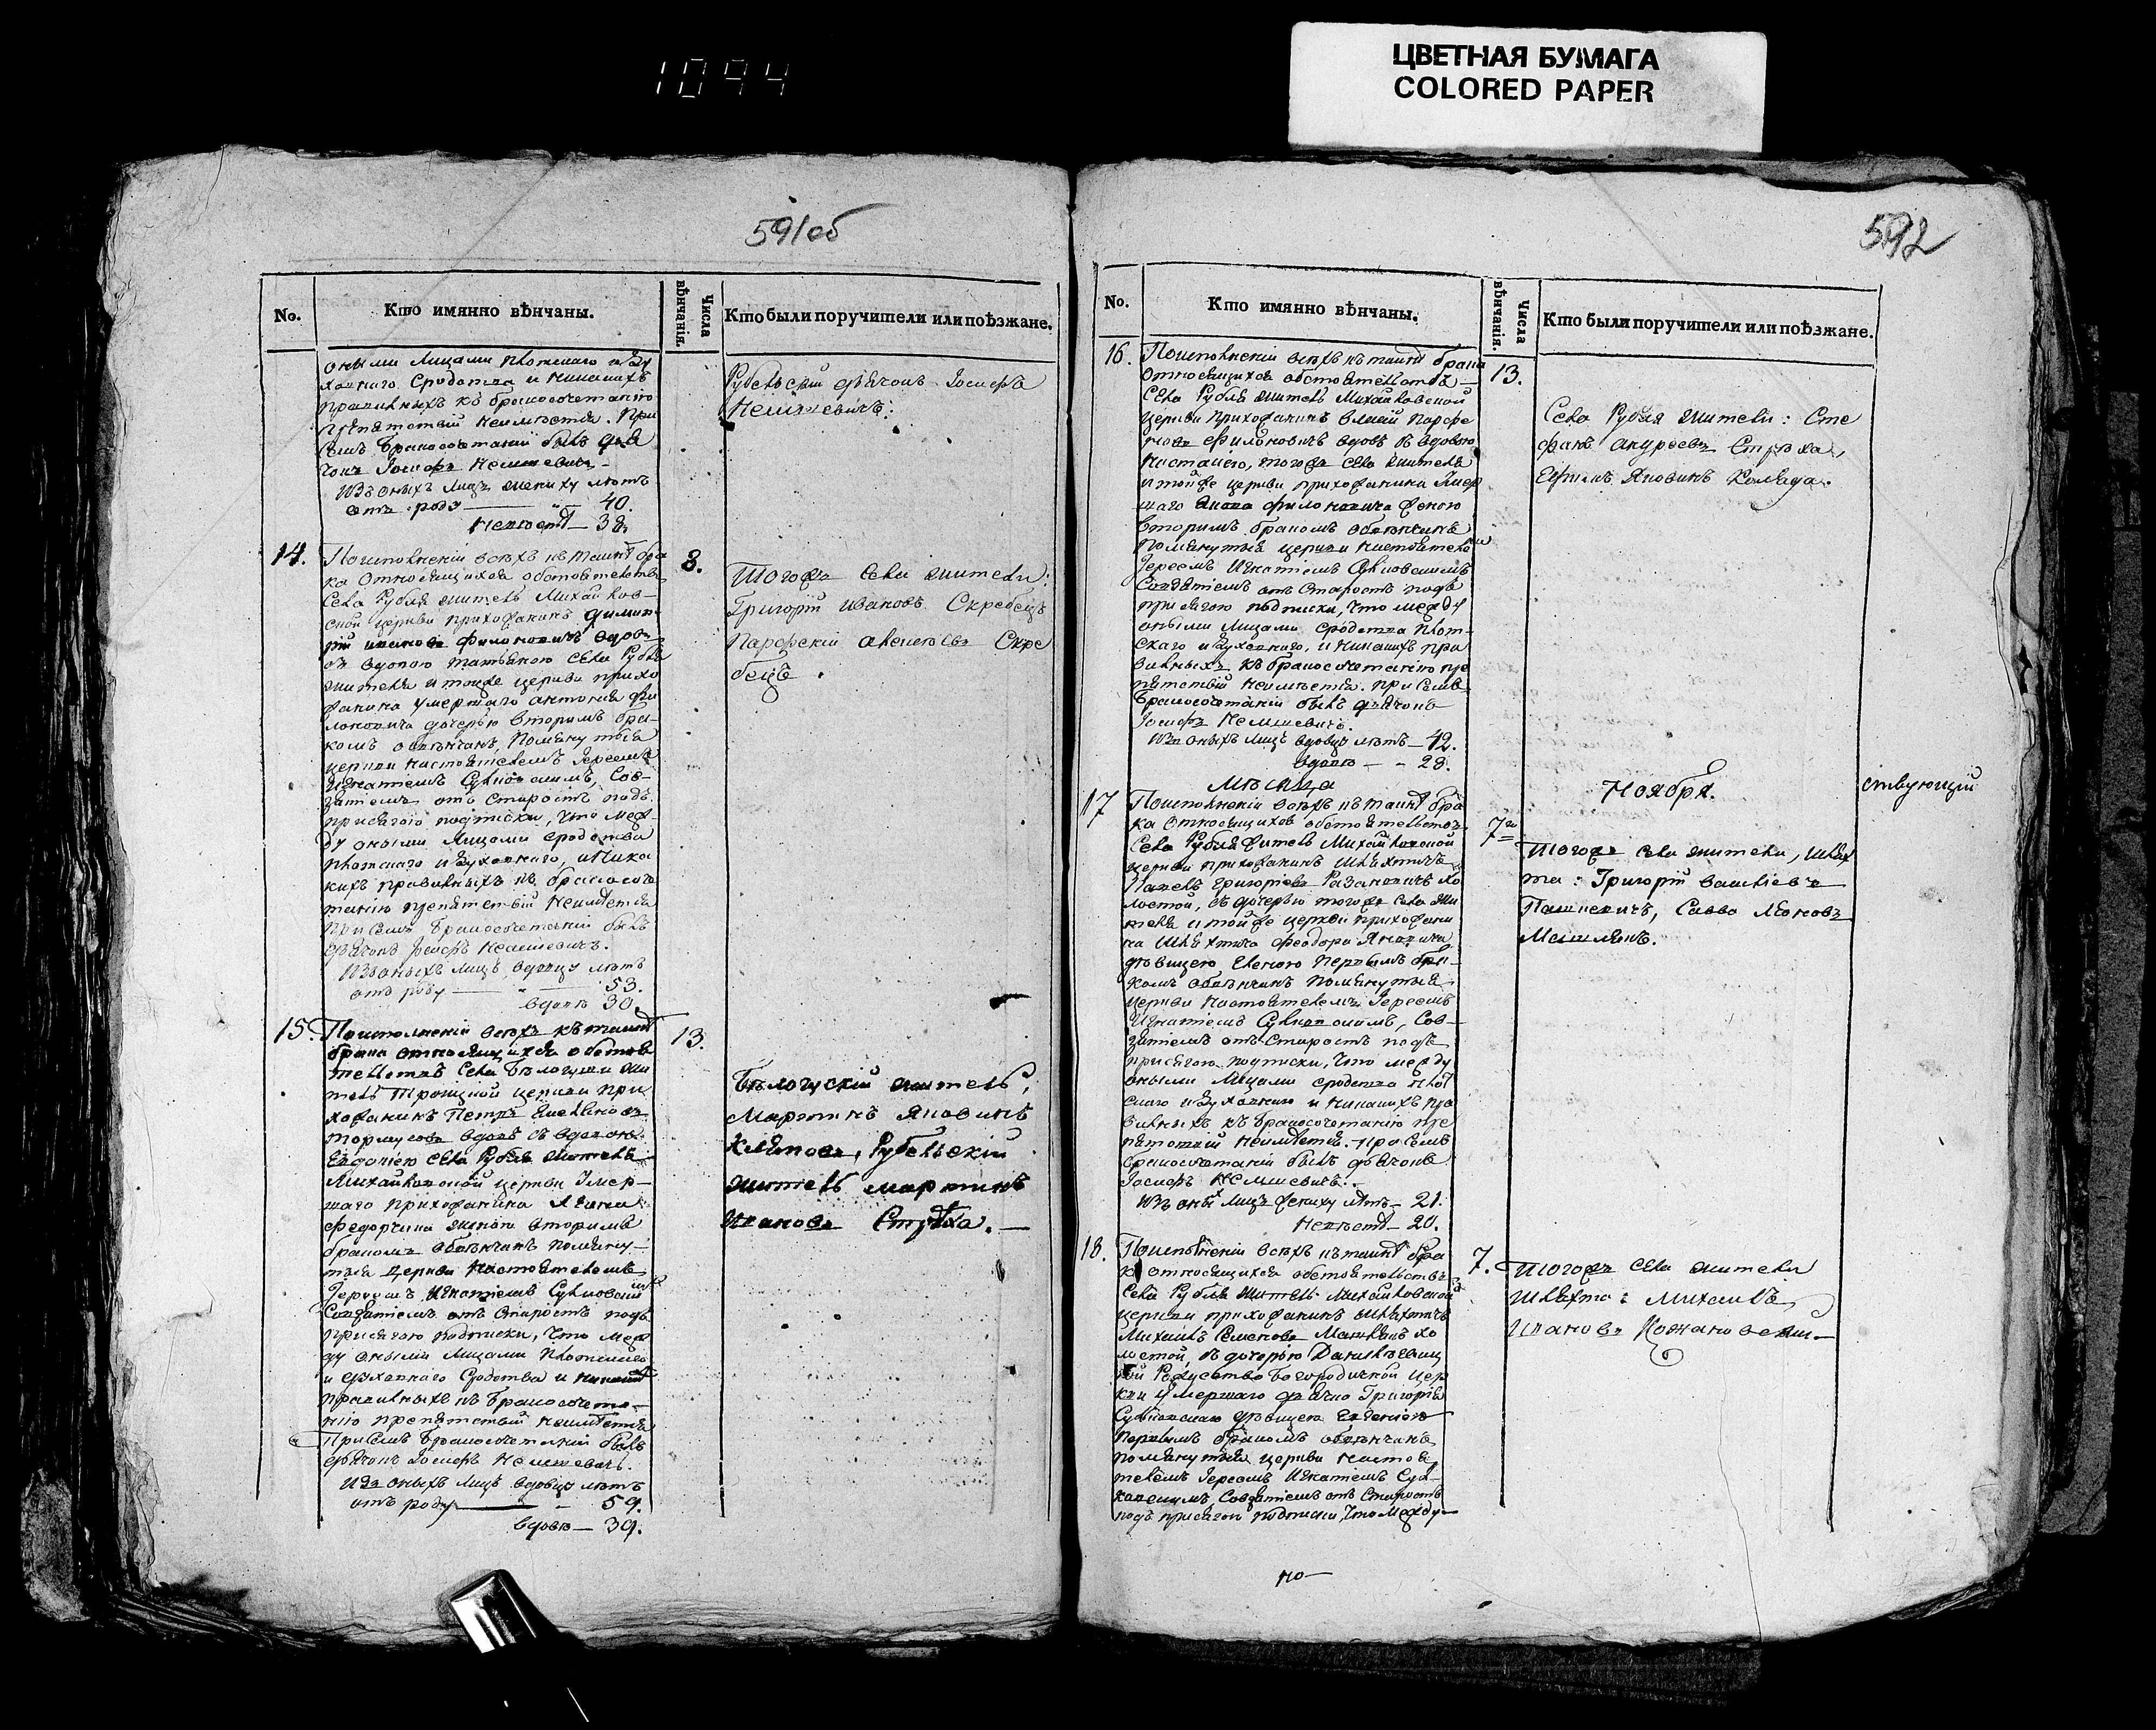 1094
ЦВЕТНАЯ БУМАГА
COLORED PAPER
591об
No.
Кто имянно вѣнчаны.
Числа вѣнчанія.
Кто были поручители или поѣзжане.
оными лицами плотскаго и Ду
ховнаго сродства и никакихъ
правильныхъ къ бракосочетанію
препятствій неимѣется. При
семъ бракосочетаніи былъ дья
чокъ Іосифъ
Изъ оныхъ лицъ жениху лѣтъ
отъ роду — 40.
Невѣстѣ — 38.
Рубельскій дьячокъ Іосифъ
14.
По исполненіи всѣхъ къ таинѣ бра
ка относящихся обстоятельствъ
села Рубля житель Михайлов-
ской церкви прихожанинъ Димит-
рій Филоновичъ вдовъ
съ вдовою Татьяною села Рубля
жителя и тоейже церкви прихо
жанина умершаго Антонія Фи
лоновича дочерью вторымъ бра-
комъ обвѣнчанъ, помянутыя
церкви настоятелемъ Іереемъ
Игнатіемъ, со в-
зятіемъ отъ старостъ подъ
присягою подписки, что меж-
ду оными лицами сродства
плотскаго и духовнаго, и ника
кихъ правильныхъ къ бракосоче
танію препятствій неимѣется
При семъ бракосочетаніи былъ
дьячокъ Іосифъ
Изъ оныхъ лицъ вдовцу лѣтъ
отъ роду — 53.
вдовѣ 30.
8.
Тогожъ села жители:
Григорій Ивановъ Скребецъ
Скре
бецъ.
15.
По исполненіи всѣхъ къ таинѣ
брака относящихся обстоя
тельствъ села Бѣлогуши жи
тель Троицкой церкви при
хожанинъ Петръ
вдовъ съ вдовою
Евдокіею села Рубля жителя
Михайловской церкви умер-
шаго прихожанина
женою вторымъ
бракомъ обвѣнчанъ помяну-
тыя церкви настоятелемъ
Іереемъ Игнатіемъ
со взятіемъ отъ старостъ подъ
присягою подписки, что меж
ду оными лицами плотскаго
и духовнаго сродства и никакихъ
правильныхъ къ бракосочета-
нію препятствій неимѣется
При семъ бракосочетаніи былъ
дьячокъ Іосифъ
Изъ оныхъ лицъ вдовцу лѣтъ
отъ роду — 59.
вдовѣ — 39.
13.
житель,
Мартинъ
Рубельскій
житель Мартинъ
Ивановъ Струха. —
592
No.
Кто имянно вѣнчаны.
Числа вѣнчанія.
Кто были поручители или поѣзжане.
16.
По исполненіи всѣхъ къ таинѣ брака
относящихся обстоятельствъ —
села Рубля житель Михайловской
церкви прихожанинъ
Филоновичъ вдовъ съ вдовою
тогожъ села жителя
и тойже церкви прихожанина умер
шаго Филоновича женою
вторымъ бракомъ обвѣнчанъ
помянутыя церкви настоятелемъ
Іереемъ Игнатіемъ
со взятіемъ отъ старостъ подъ
присягою подписки, что между
оными лицами сродства плот-
скаго и духовнаго, и никакихъ пра
вильныхъ къ бракосочетанію пре
пятствій неимѣется. При семъ
бракосочетаніи былъ дьячокъ
Іосифъ
Изъ оныхъ лицъ вдовцу лѣтъ — 42.
вдовѣ — 28.
13.
Села Рубля жители: Сте
фанъ Андреевъ Струха,
Коляда.
Мѣсяца
Ноября.
ствующій
17
По исполненіи всѣхъ къ таинѣ бра
ка относящихся обстоятельствъ
села Рубля житель Михайловской
церкви прихожанинъ шляхтичъ
Павелъ Григоріевъ хо
лостой, съ дочерью тогожъ села жи
теля и тойже церкви прихожани
на шляхтича Феодора
дѣвицею Еленою первымъ бра-
комъ обвѣнчанъ помянутыя
церкви настоятелемъ Іереемъ
Игнатіемъ, со в-
зятіемъ отъ старостъ подъ
присягою подписки, что между
оными лицами сродства плот
скаго и духовнаго и никакихъ пра
вильныхъ къ бракосочетанію пре
пятствій неимѣется. При семъ
бракосочетаніи былъ дьячокъ
Іосифъ
Изъ оныхъ лицъ жениху лѣтъ — 21.
Невѣстѣ — 20.
7го
Тогожъ села жители, шлях
та: Григорій Василіевъ
Пашкевичъ, Савва
18.
По исполненіи всѣхъ къ таинѣ бра
ка относящихся обстоятельствъ
села Рубля житель Михайловской
церкви прихожанинъ шляхтичъ
Михаилъ Семеновъ хо
лостой, съ дочерью
Рождество Богородичной цер
кви умершаго дьячка Григорія
дѣвицею Евгеніею
первымъ бракомъ обвѣнчанъ
помянутыя церкви настоя
телемъ Іереемъ Игнатіемъ
со взятіемъ отъ старостъ
подъ присягою подписки, что между
7.
Тогожъ села жители
шляхта: Михаилъ
Ивановъ
но —